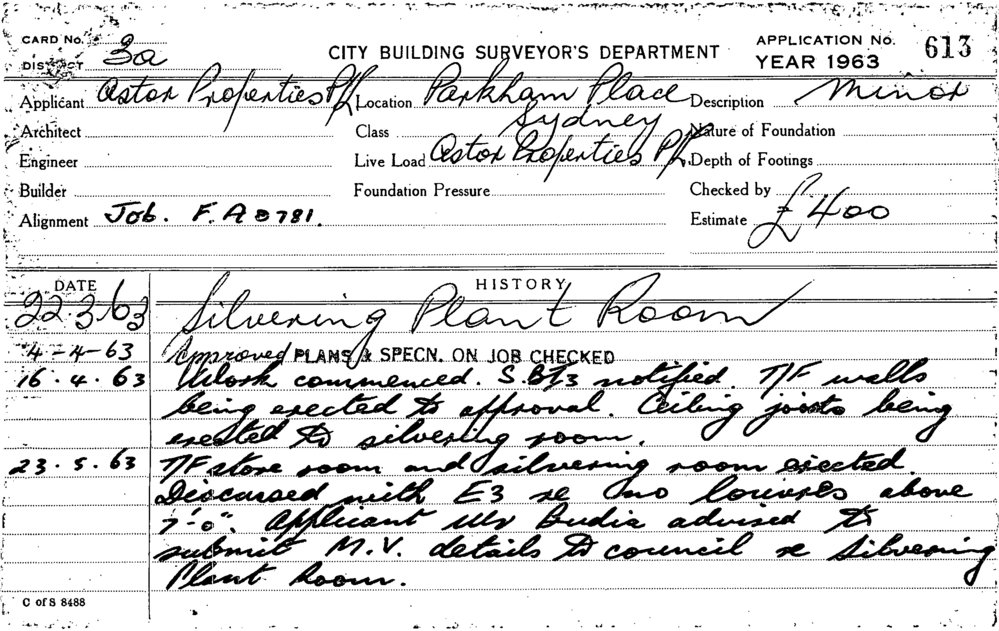 CARD No.
DISTRICT 3a
CITY BUILDING SURVEYOR'S DEPARTMENT
APPLICATION No. 613
YEAR 1963
Applicant Astor Properties P/L Location Parkham Place Sydney Description Minor
Architect Class Nature of Foundation
Engineer Live Load Astor Properties P/L Depth of Footings
Builder Foundation Pressure Checked by
Alignment Job. F.A 0781. Estimate £400
DATE HISTORY
22.3.63 Silvering Plant Room
4-4-63 Approved PLANS & SPECN. ON JOB CHECKED
16.4.63 Work commenced. notified. T/F walls
being erected to approval. Ceiling joists being
erected to silvering room.
23.5.63 T/F store room and silvering room erected.
Discussed with E3 re no louvres above
7'-0". Applicant Mr advised to
submit M.V. details to council re Silvering
Plant Room.
C of S 8488